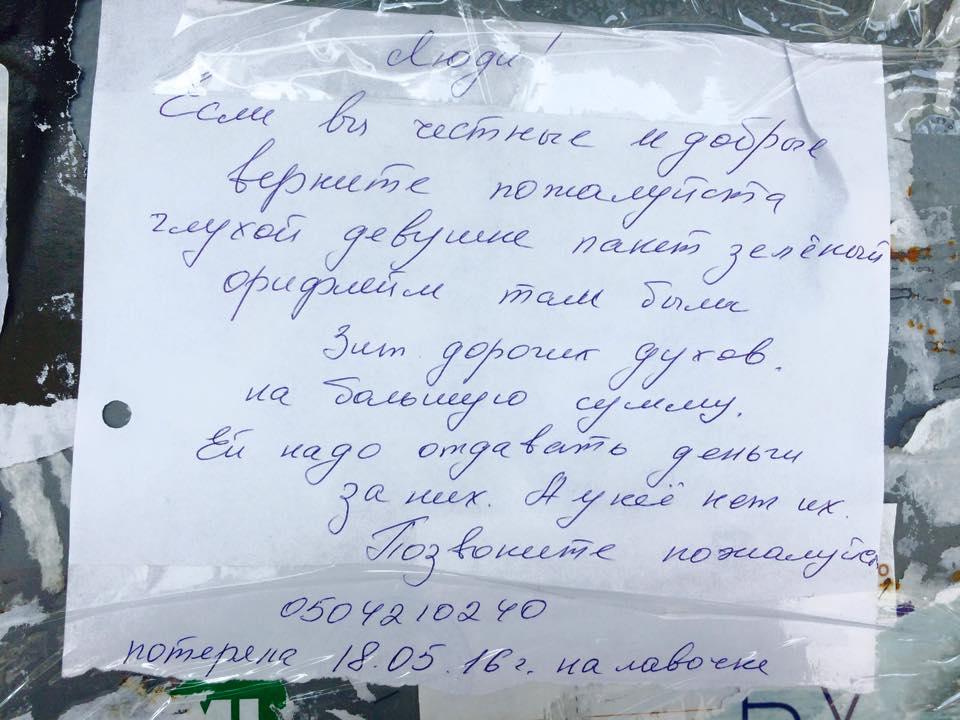 Люди!
Если вы честные и добрые
верните пожалуйста
глухой девушке пакет зелёный
орифлейм там были
3 шт. дорогих духов.
на большую сумму.
Ей надо отдавать деньги
за них. А у неё нет их.
Позвоните пожалуйст
0504210240
потеряла 18.05.16 г. на лавочке